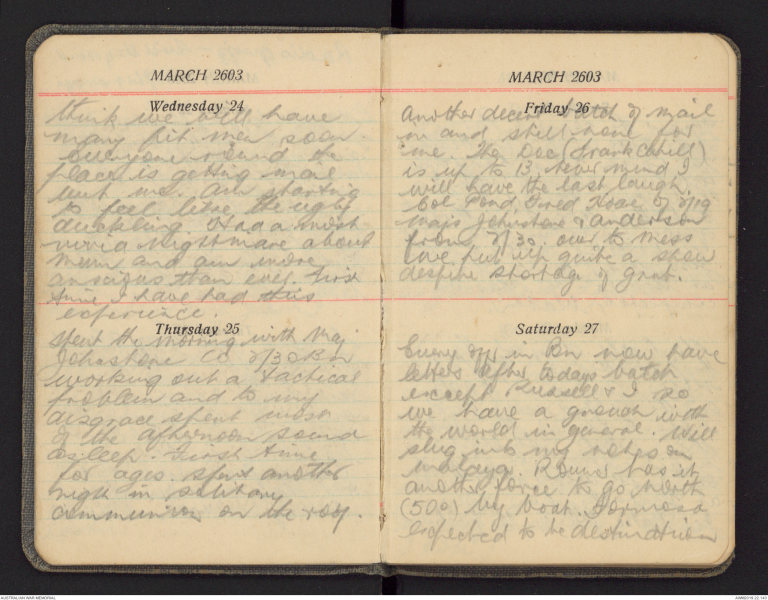 MARCH 2603
Wednesday 24
think we will have
many fit men soon.
Everyone round the
place is getting mail
but me. Am starting
to feel like the ugly
duckling. Had a most
vivid nightmare about
Mum and am more
anxious than ever. First
time I have had this
experience.
Thursday 25
Spent the morning with Maj
Johnstone CO 2/30 Bn
working out a tactical
problem and to my
disgrace spent most
of the afternoon sound
asleep. First time
for ages. Spent another
night in solitary
communion on the roof.
MARCH 2603
Friday 26
Another decent batch of mail
in and still none for
me. The Doc (Frank Cahill)
is up to 13. Never mind I
will have the last laugh.
Col Pond Fred Hoae of 2/19
Majs Johnstone & Anderson
from 2/30. over to mess
we put up quite a show
despite shortage of grub.
Saturday 27
Every offr in Bn now have
letters after todays batch
except Russell & I so
we have a grouch with
the world in general. Will
slug into my notes on
Malaya. Rumour has it
another force to go North
(500) by boat. Formosa
expected to be destination
AUSTRALIAN WAR MEMORIAL